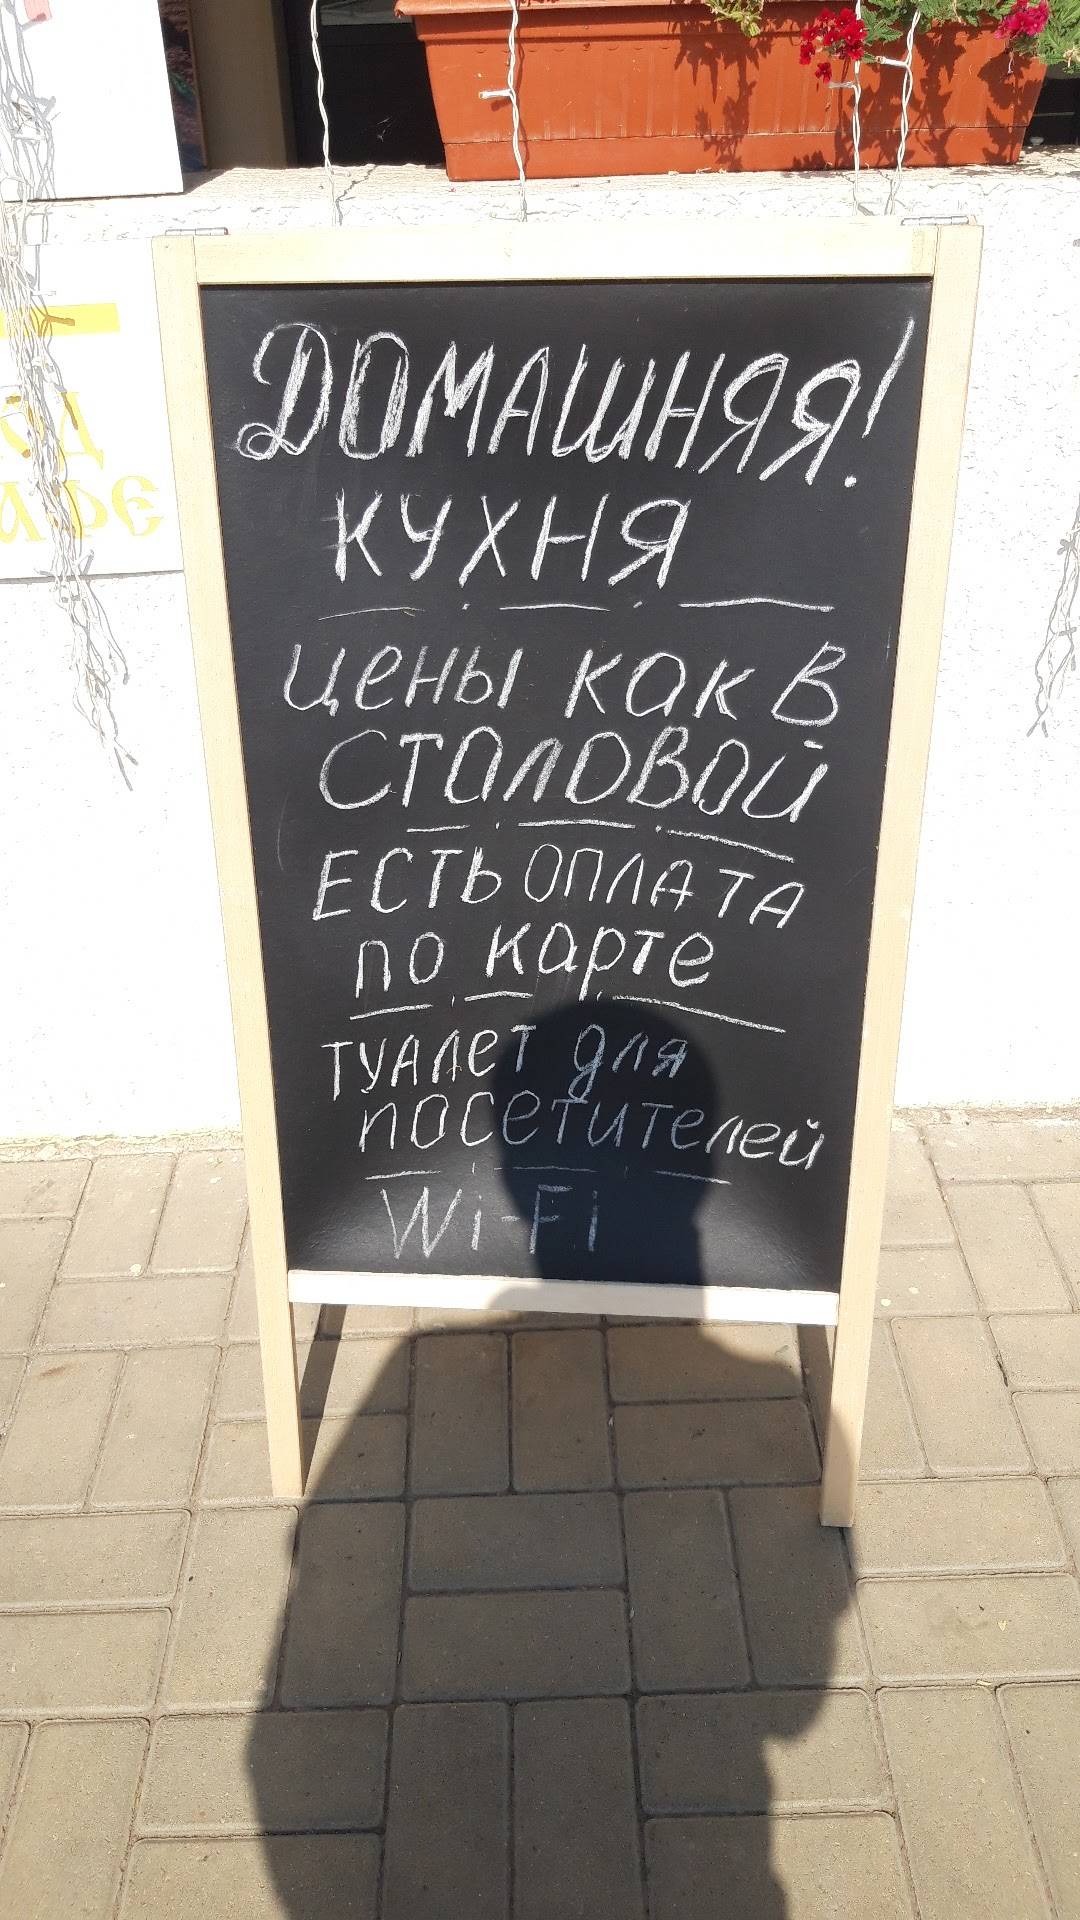 ДОМАШНЯЯ!
КУХНЯ
цены как в
СТОЛОВОЙ
ЕСТЬ ОПЛАТА
по карте
ТУАЛЕТ для
посетителей
Wi-Fi